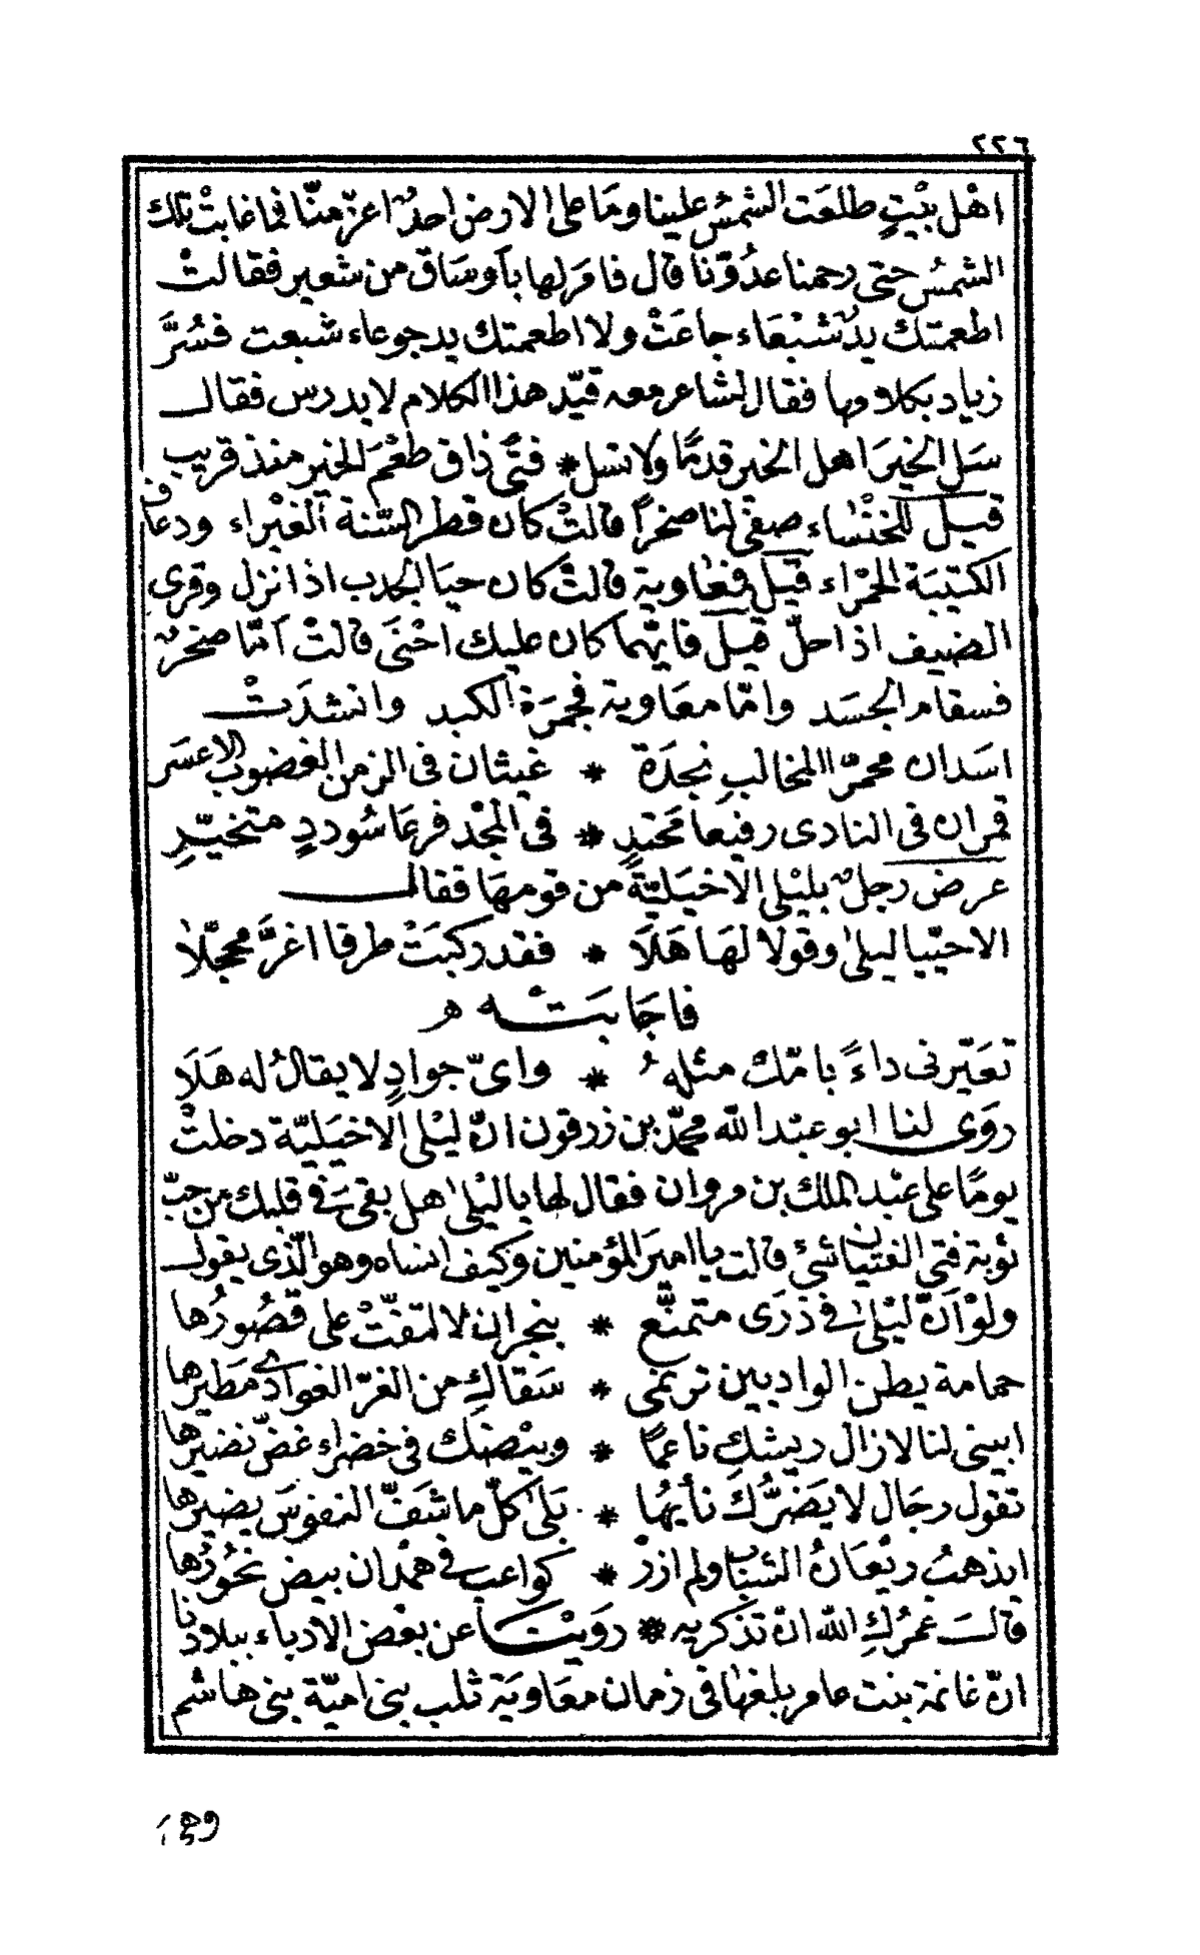 ٢٢٦
اهْل بَيْتٍ طلعَت الشمسُ علينا ومَا على الارض احدٌ اعزّ منّا فما غابتْ تلك
الشمسُ حتى رحمنا عدُوّنا قال فامر لها باَوسَاق من شعير فقالتْ
اطعمتك يدٌ شبْعَاء جاعَتْ ولا اطعمتك يد جوعاء شبعت فسُرَّ
زياد بكلامها فقال لشاعر معه قيّد هذا الكلام لا يدرس فقال
سَل الخيرَ اهل الخير قدمًا ولا تسل * فتًى ذاق طعْمَ الخير منذ قريب
قيل للخنْسَاء صفى لنا صخرًا قالتْ كان قطر السّنة الغَبْراء وذعاف
الكتيبَة الحمْراء قيل فمعاوية قالتْ كان حيَا الجدب اذا نزل وقرى
الضيف اذا حلّ قيل فايّهما كان عليك احْنَى قالتْ امّا صخرٌ
فسقام الجسَد وامّا معَاوية فجمرَة الكبد وانشدَتْ
اسَدان محمرّا المخالبِ نجدَة * غيثان فى الزمن الغضوب الاعسَر
قمران فى النادى رفيعَا محَتدٍ * فى المجْد فرعَا سُوددٍ متخيّرِ
عرض رجلٌ بليْلى الاخيَليّة من قومهَا فقال
الا حيّيا ليلىٰ وقولا لهَا هَلَا * فقد ركبَتْ طرفا اغرَّ محجّلا
فاجَابَتْه ه
تعَيّرنى داءً بامّك مثلهُ * واىّ جوادٍ لا يقالُ له هَلَا
روَى لنا ابو عبْد الله محمّد بن زرقون انّ ليْلى الاخيَليّة دخلتْ
يومًا على عبْد الملك بن مروان فقال لها يا ليْلىٰ هل بقىَ فى قلبك من حبّ
توبة فتى الفتيان شئ قالت يا امير المؤمنين وكيف انساه وهو الّذى يقول
ولوْ اَنّ ليْلىٰ فى ذرَى متمنّع * بنجران لالتفّتْ على قصُورُها
حمامة بطن الواديين ترنمى * سَقاكِ من الغرّ الغوادى مَطيرها
ابينى لنا لازال ريشكِ ناعمًا * وبيْضك فى خضراء غضّ نضيرّها
تقول رجَال لا يَضرُّكَ نأيهُا * بَلى كلّ ما شَفّ النفوسَ يضيرها
ايذهبُ ريْعَانُ الشبَاب ولم ازرْ * كواعب فى همْدان بيض نحُورُها
قالت عمرُكِ الله انّ تذكريه * رَوَيْتا عن بعْض الادباء ببلادنا
انّ غانمة بنت عامر بلغهَا فى زمان معَاوية ثلب بنى اميّة بنى هاشم